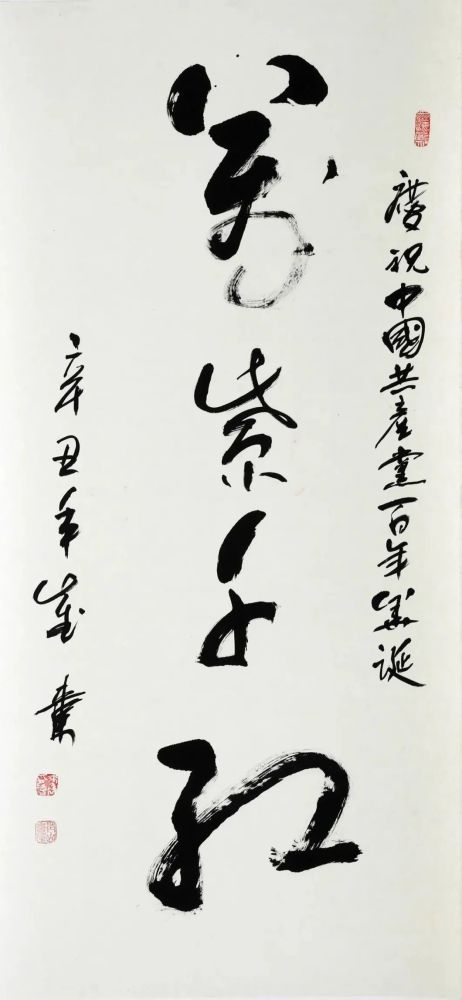 慶祝中國共產黨一百年華誕
萬紫千紅
辛丑年